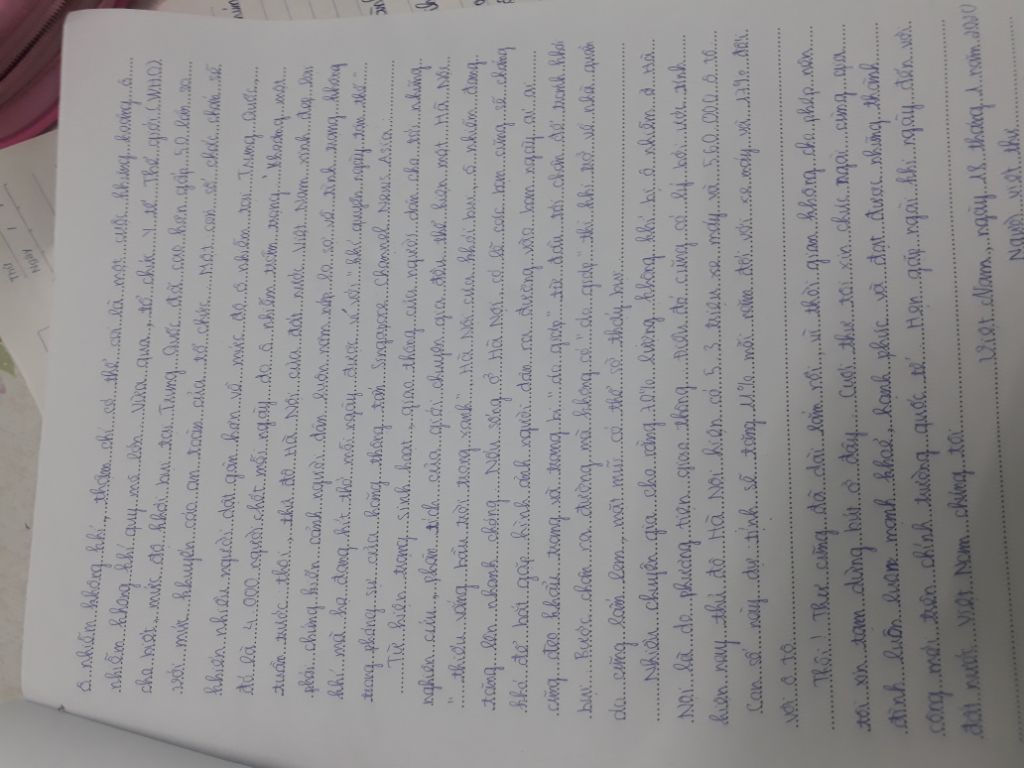 ô nhiễm không khí, thậm chí có thể coi là một cuộc khủng hoảng ô
nhiễm không khí quy mô lớn. Vừa qua, tổ chức y tế Thế giới (WHO)
cho biết, mức độ khói bụi tại Trung Quốc đã cao hơn gấp 50 lần so
với mức khuyến cáo an toàn của tổ chức. Một con số chắc chắn sẽ
khiến nhiều người dật gân hơn về mức độ ô nhiễm tại Trung Quốc,
đó là 4.000 người chết mỗi ngày do ô nhiễm trầm trọng. "Khoảng một
tuần trước thôi, thủ đô Hà Nội của đất nước Việt Nam xinh đẹp
phải chứng kiến cảnh người dân luôn nơm nớp lo sợ vô tình trạng không
khí mà họ đang hít thở mỗi ngày được ví với "khí quyển ngày tận thế"
trong phóng sự của hãng thông tấn Singapore Channel News Asia.
Từ hiện trạng sinh hoạt, giao thông của người dân cho tới những
nghiên cứu, phân tích của giới chuyên gia đều thể hiện một Hà Nội
"thiếu vắng bầu trời trong xanh". Hà Nội của khói bụi, ô nhiễm đang
tăng lên nhanh chóng. Nếu sống ở Hà Nội, có lẽ các bạn cũng sẽ chẳng
khó để bắt gặp hình ảnh người dân ra đường vào ban ngày ai ai
cũng đeo khẩu trang và trang bị "đồ giáp" từ đầu tới chân để tránh khói
bụi. Bước chân ra đường mà không có "đồ giáp" thì khi trở về nhà quần
áo cũng lấm lem, mặt mũi có thể sờ thấy bụi.
Nhiều chuyên gia cho rằng 70% lượng không khí bị ô nhiễm ở Hà
Nội là do phương tiện giao thông. Điều đó cũng có lý bởi ước tính
hiện nay thủ đô Hà Nội hiện có 5.3 triệu xe máy và 560.000 ô tô.
Con số này dự tính sẽ tăng 11% mỗi năm đối với xe máy và 17% đối
với ô tô.
Thôi! Thư cũng đã dài lắm rồi, vì thời gian không cho phép nên
tôi xin tạm dừng bút ở đây. Cuối thư tôi xin chúc ngài cùng gia
đình luôn luôn mạnh khoẻ, hạnh phúc và đạt được những thành
công mới trên chính trường quốc tế. Hẹn gặp ngài khi ngày đến với
đất nước Việt Nam chúng tôi.
Việt Nam, ngày 18 tháng 1 năm 2020
Người viết thư